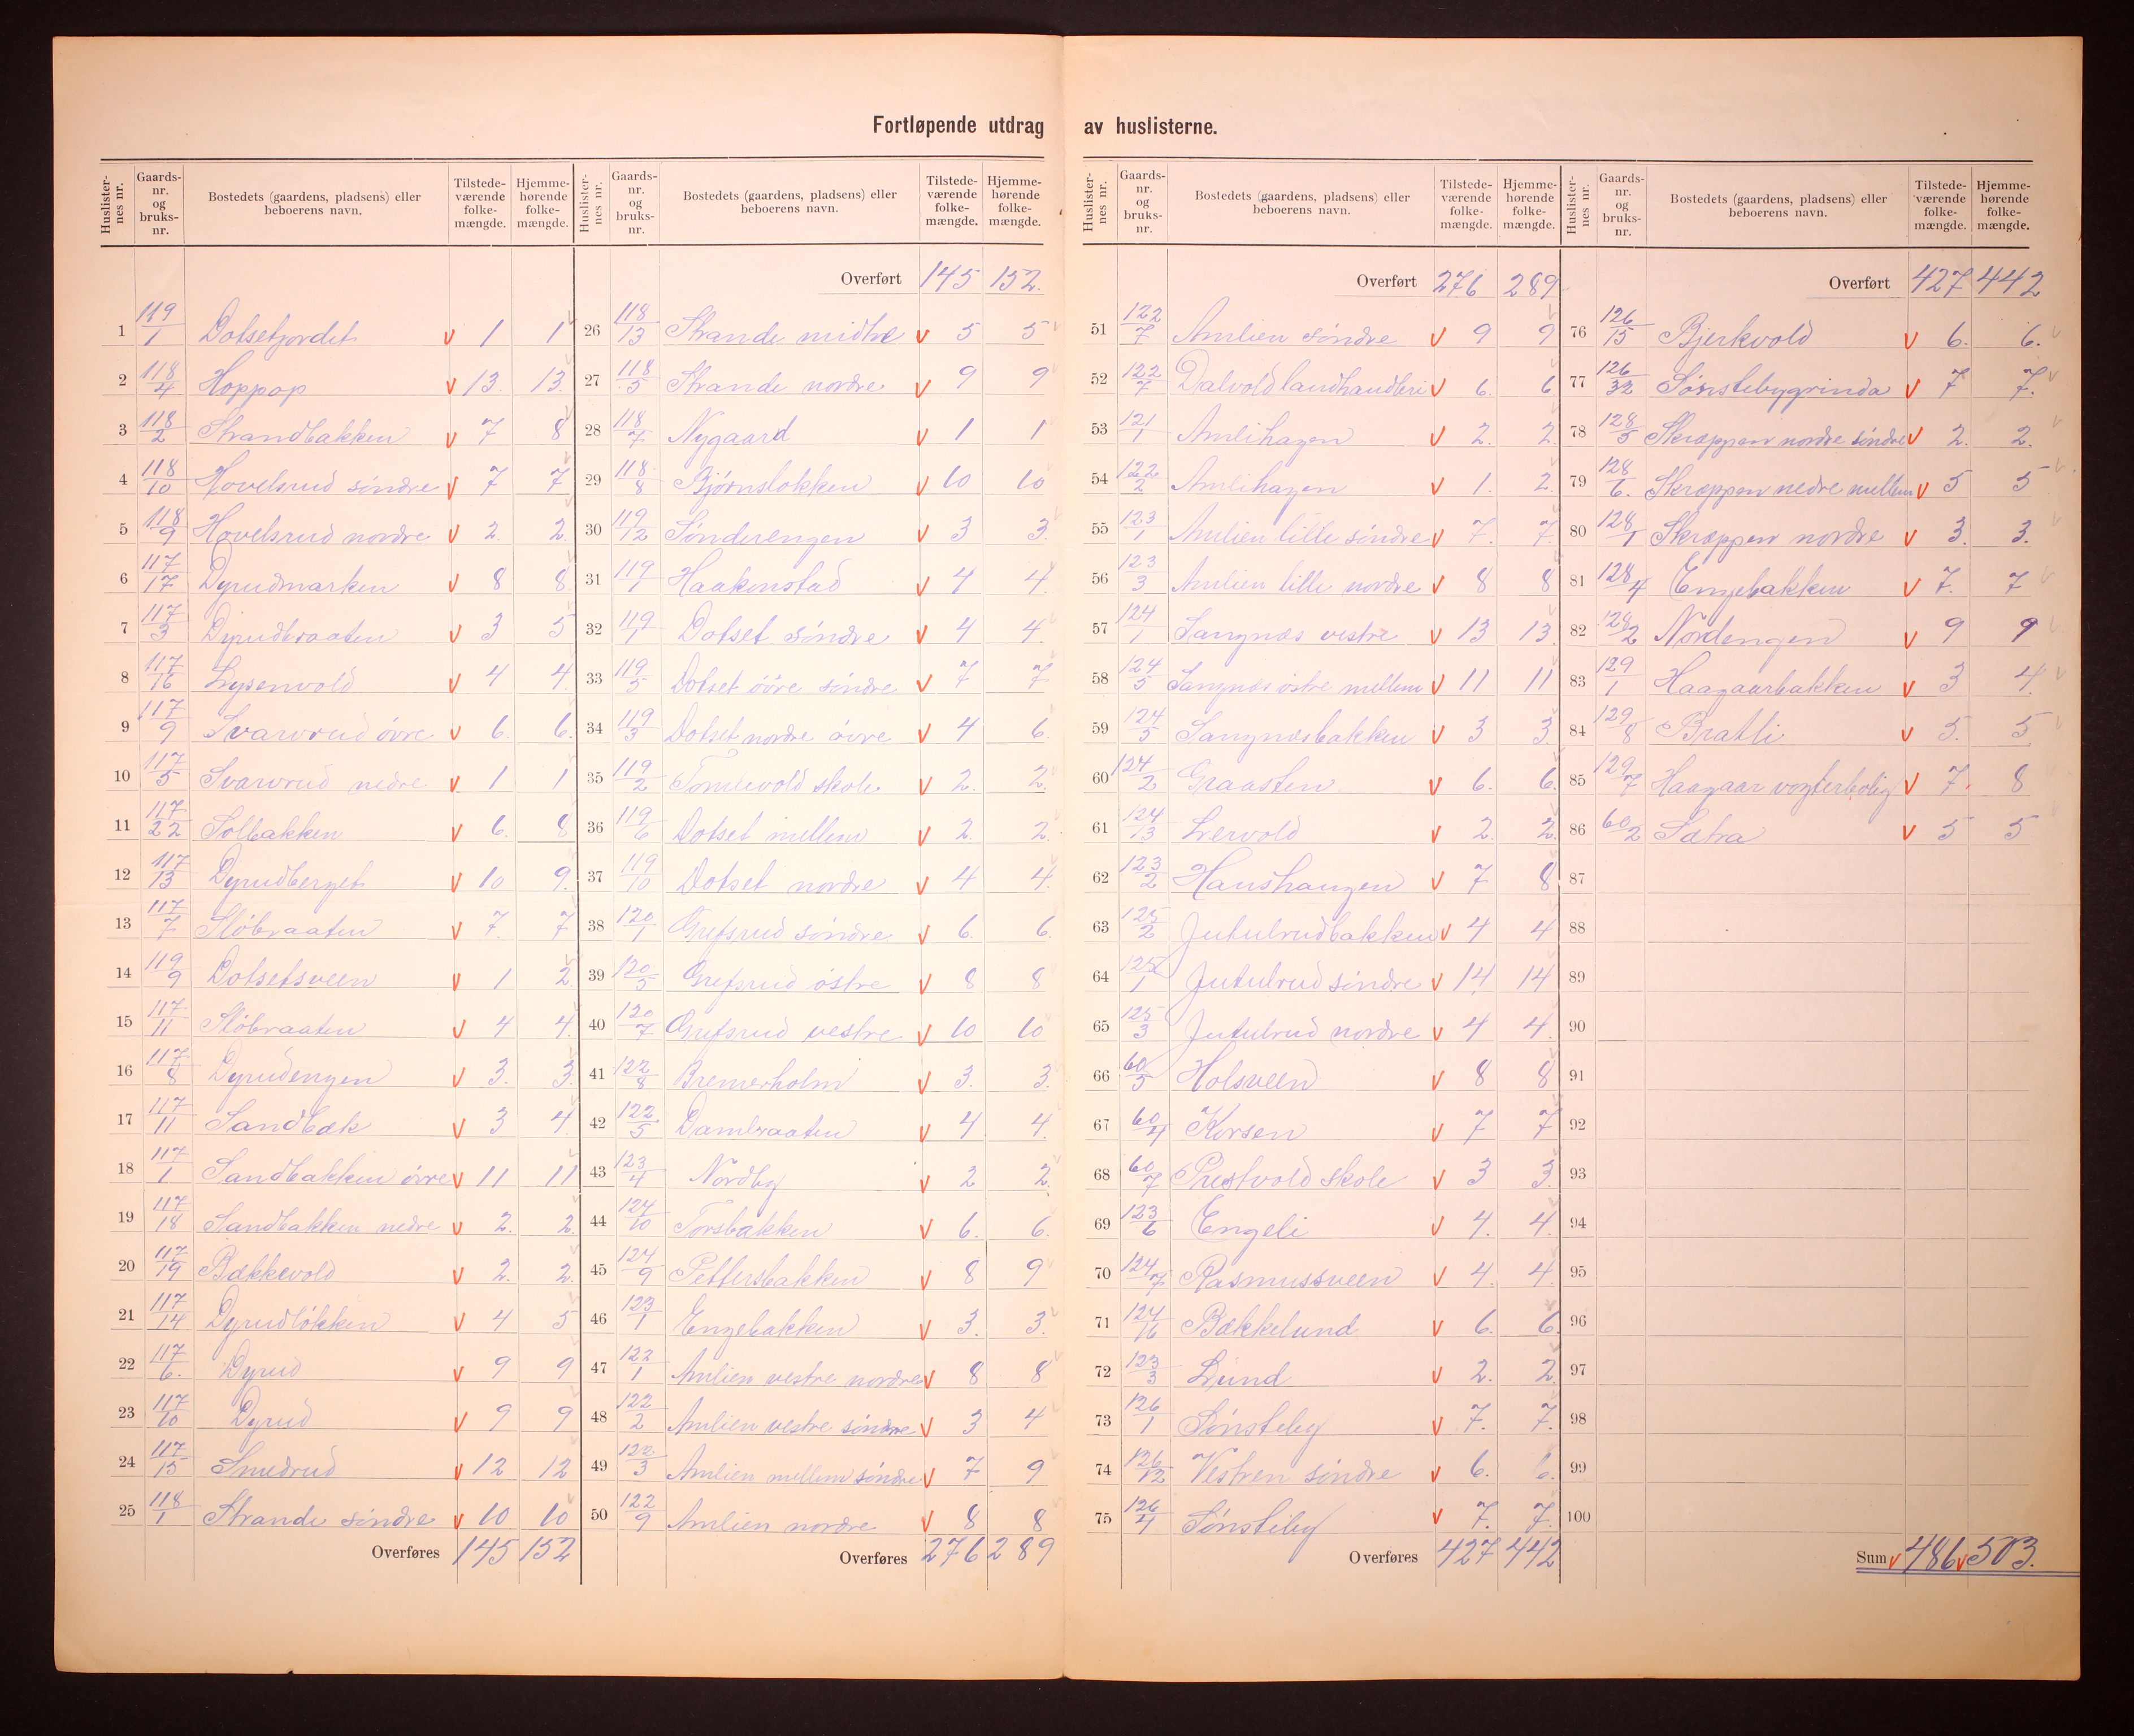 Fortløpende utdrag av huslisterne.
Huslisternes nr. Gaards-nr. og bruks-nr. Bostedets (gaardens, pladsens) eller beboerens navn. Tilstedeværende folkemængde. Hjemmehørende folkemængde.
1 119/1 Dotsetjordet v 1 1
2 118/4 Hoppop v 13. 13.
3 118/2 Strandbakken v 7 8
4 118/10 Hovelsrud søndre v 7 7
5 118/9 Hovelsrud nordre v 2 2.
6 117/17 Dyrudmarken v 8 8
7 117/3 Dyrudbraaten v 3 5
8 117/16 Lysenvold v 4 4
9 117/9 Svarvrud øvre v 6. 6.
10 117/5 Svarvrud nedre v 1 1
11 117/22 Solbakken v 6. 8
12 117/13 Dyrudberget v 10 9.
13 117/7 Støbraaten v 7. 7
14 119/9 Dotsetsveen v 1 2.
15 117/11 Støbraaten v 4 4.
16 117/8 Dyrudengen v 3. 3.
17 117/11 Sandbæk v 3 4
18 117/1 Sandbakken øvre v 11 11
19 117/18 Sandbakken nedre v 2. 2
20 117/19 Bækkevold v 2. 2.
21 117/14 Dyrudløkken v 4 5
22 117/6. Dyrud v 9 9
23 117/10 Dyrud v 9 9
24 117/15 Smedrud v 12 12
25 118/1 Strande søndre v 10 10
Overføres 145 152
Huslisternes nr. Gaards-nr. og bruks-nr. Bostedets (gaardens, pladsens) eller beboerens navn. Tilstedeværende folkemængde. Hjemmehørende folkemængde.
Overført 145 152.
26 118/13 Strande midtre v 5 5
27 118/5 Strande nordre v 9 9
28 118/7 Nygaard v 1 1
29 118/8 Bjørnsløkken v 10 10
30 119/12 Sønderengen v 3 3.
31 119/1 Haakenstad v 4 4.
32 119/1 Dotset søndre v 4 4.
33 119/5 Dotset øvre søndre v 7 7
34 119/3 Dotset nordre øvre v 4 6.
35 119/2 Tomlevold skole v 2. 2.
36 119/6 Dotset mellem v 2. 2.
37 119/10 Dotset nordre v 4 4.
38 120/1 Grefsrud søndre v 6. 6.
39 120/5 Grefsrud østre v 8 8
40 120/7 Grefsrud vestre v 10 10
41 122/8 Bremerholm v 3. 3.
42 122/5 Dambraaten v 4 4.
43 123/4 Nordby v 2 2.
44 124/10 Torsbakken v 6. 6.
45 124/9 Pettersbakken v 8 9
46 123/1 Engebakken v 3. 3.
47 122/1 Amlien vestre nordre v 8 8
48 122/2 Amlien vestre søndre v 3 4
49 122/3 Amlien mellem søndre v 7 9
50 122/9 Amlien nordre v 8 8
Overføres 276 289
Huslisternes nr. Gaards-nr. og bruks-nr. Bostedets (gaardens, pladsens) eller beboerens navn. Tilstedeværende folkemængde. Hjemmehørende folkemængde.
Overført 276 289
51 122/7 Amlien søndre v 9 9
52 122/7 Dalvold landhandleri v 6. 6
53 121/1 Amlihagen v 2. 2.
54 122/2 Amlihagen v 1. 2.
55 123/1 Amlien lille søndre v 7. 7.
56 123/3 Amlien lille nordre v 8 8
57 124/1 Sangnæs vestre v 13 13
58 124/5 Sangnæs østre mellem v 11 11
59 124/5 Sangnæsbakken v 3 3.
60 124/2 Graasten v 6. 6.
61 124/13 Lervold v 2. 2.
62 123/2 Haushaugen v 7 8
63 125/2 Jutulrudbakken v 4 4
64 125/1 Jutulrud søndre v 14 14
65 125/3 Jutulrud nordre v 4 4.
66 60/5 Holsveen v 8 8
67 60/4 Korsen v 7 7
68 60/7 Prestvold skole v 3 3.
69 123/6 Engeli v 4. 4.
70 124/7 Rasmussveen v 4. 4.
71 124/16 Bækkelund v 6. 6.
72 123/3 Lund v 2. 2.
73 126/1 Sønsteby v 7. 7.
74 126/12 Vestren søndre v 6. 6.
75 126/4 Sønsteby v 7. 7.
Overføres 427 442
Huslisternes nr. Gaards-nr. og bruks-nr. Bostedets (gaardens, pladsens) eller beboerens navn. Tilstedeværende folkemængde. Hjemmehørende folkemængde.
Overført 427 442
76 126/15 Bjerkvold v 6. 6.
77 126/32 Sønstebygrinda v 7 7.
78 128/5 Skrappen nordre søndre v 2. 2.
79 128/6. Skrappen nedre mellem v 5 5
80 128/1 Skrappen nordre v 3. 3.
81 128/4 Engebakken v 7. 7
82 128/2 Nordengen v 9 9
83 129/1 Haagaarbakken v 3 4.
84 129/8 Bratli v 5. 5
85 129/7 Haagaar vogterbolig v 7. 8
86 60/2 Sætra v 5 5
87
88
89
90
91
92
93
94
95
96
97
98
99
100
Sum v 486 v 503.